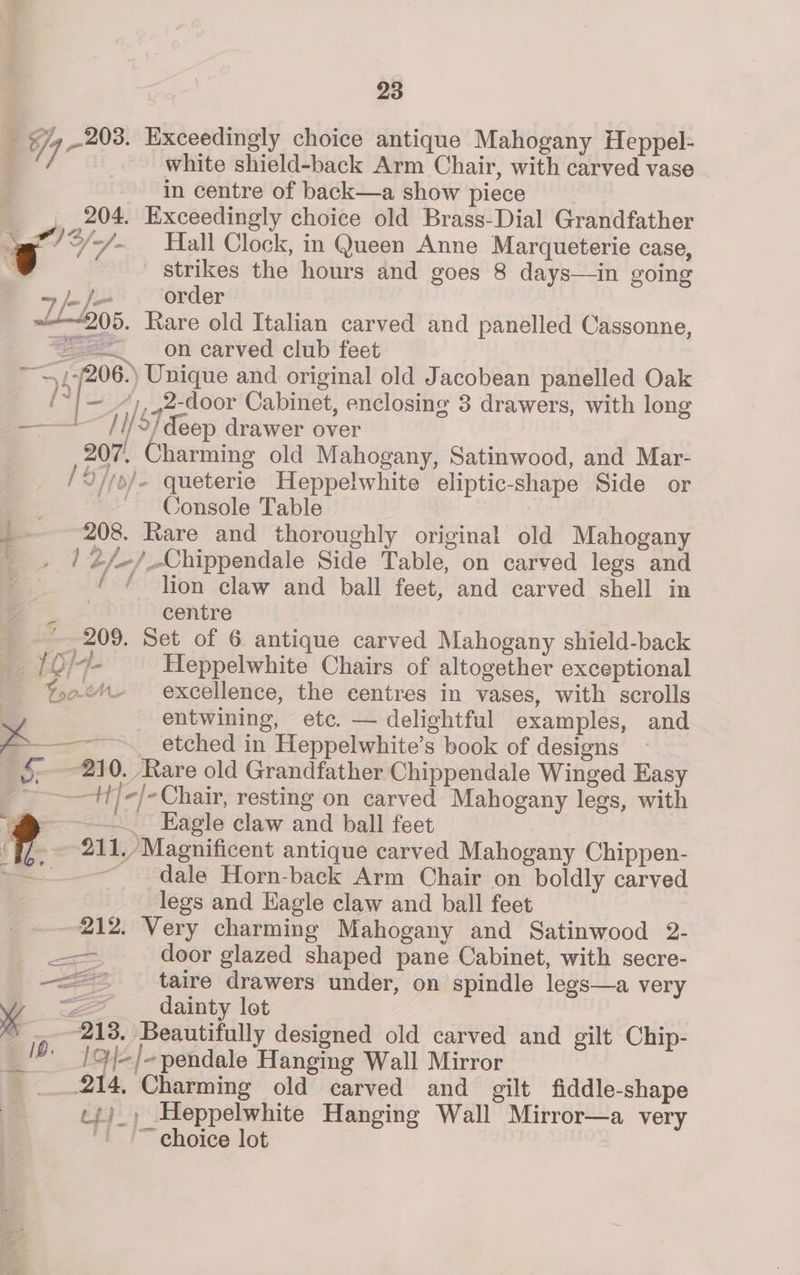 23
203. Exceedingly choice antique Mahogany Heppel-
white shield-back Arm Chair, with carved vase
in centre of back—a show piece
204. Exceedingly choice old Brass-Dial Grandfather
Hall Clock, in Queen Anne Marqueterie case,
strikes the hours and goes 8 days—in going
order
205. Rare old Italian carved and panelled Cassonne,
on carved club feet
206. Unique and original old Jacobean panelled Oak
2-door Cabinet, enclosing 3 drawers, with long
deep drawer over
207. Charming old Mahogany, Satinwood, and Mar-
queterie Heppelwhite eliptic-shape Side or
Console Table
208. Rare and thoroughly original old Mahogany
Chippendale Side Table, on carved legs and
lion claw and ball feet, and carved shell in
centre
209. Set of 6 antique carved Mahogany shield-back
Heppelwhite Chairs of altogether exceptional
excellence, the centres in vases, with scrolls
entwining, etc. — delightful examples, and
etched in Heppelwhite's book of designs
210. Rare old Grandfather Chippendale Winged Easy
Chair, resting on carved Mahogany legs, with
Eagle claw and ball feet
211. Magnificent antique carved Mahogany Chippen-
dale Horn-back Arm Chair on boldly carved
legs and Eagle claw and ball feet
212. Very charming Mahogany and Satinwood 2-
door glazed shaped pane Cabinet, with secre-
taire drawers under, on spindle legs—a very
dainty lot
213. Beautifully designed old carved and gilt Chip-
pendale Hanging Wall Mirror
214. Charming old carved and gilt fiddle-shape
Heppelwhite Hanging Wall Mirror—a very
choice lot